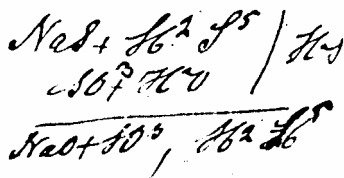 NaS + H² S⁵ / HS
SO³ + HO
NaO + SO³, H² S⁵